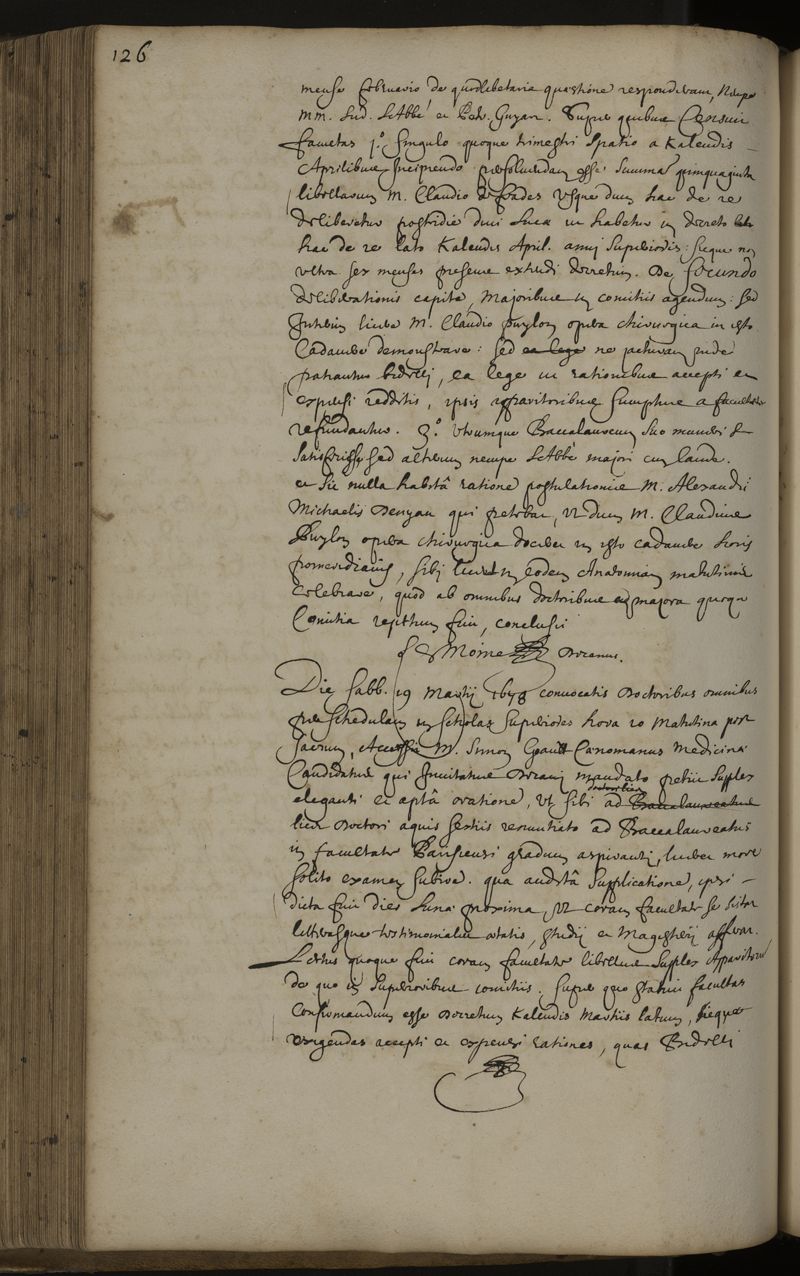 126
mense februario de quodlibetaria quæstione responderant, nempe
MM. Lud. LeAbbé et Petr. Guyart. Super quibus Censuit
facultas 1.° singulo quoque trimestri spatio a Kalendis
Aprilibus incipiendo persolvendam esse summam quinquaginta
libellarum M. Claudio usque dum hac de re
deliberetur postridie divi Lucæ ut habetur in decreto
hac de re lato Kalendis April. anni superioris: sicque non
ultra sex menses præsens extendi decretum. De secundo
deliberationis capite, Majoribus in comitiis agendum: sed
interim licere M. Claudio Puylon opera chirurgica in isto
Cadavere demonstrare: sed ea lege ne jacturam inde
patiantur bidelli, ea lege ut rationibus accepti et
expensi redditis, ipsis apparitoribus sumptus a facultate
refundantur. 3.° utrumque Baccalaureum suo muneri
satisfecisse sed alterum nempe LeAbbé majori cum laude.
et sic nulla habitâ ratione postulationis M. Alexandri
Michaelis Denyau qui petebat, ut dum M. Claudius
Puylon opera chirurgica doceret in isto cadavere horis
pomeridianis, sibi liceret in eodem Anatomiam matutinis
celebrare, quod ab omnibus doctoribus majora quoque
Comitia rejectum fuit, conclusit
Le Moine Decanus.
Die sabb. 19 Martii 1678 convocatis Doctoribus omnibus
per schedulam in scholas superiores hora 10 matutina post
sacrum, Accessit M. Simon Cenomanus Medicinæ
Candidatus qui invitatus Decani mandato petiit supplex
eleganti et aptâ oratione, ut sibi ad doctoratum Baccalaureatus
licet Doctori aquis sextiis renuntiato ad Baccalaureatus
in facultate Parisiensi gradum aspiranti, liceret more
solito examen subire. qua auditâ supplicatione, ipsi
dicta fuit dies Lunæ proxima, ut coram facultate se sistat
litterasque testimoniales ætatis, studii et Magisterii afferat.
Lectus quoque fuit coram facultate libellus supplex Apparitorum
de quo in superioribus comitiis. super quo statuit facultas
Confirmandum esse Decretum Kalendis Martiis latum, sicque
exigendas accepti et expensi rationes, quas Bidelli